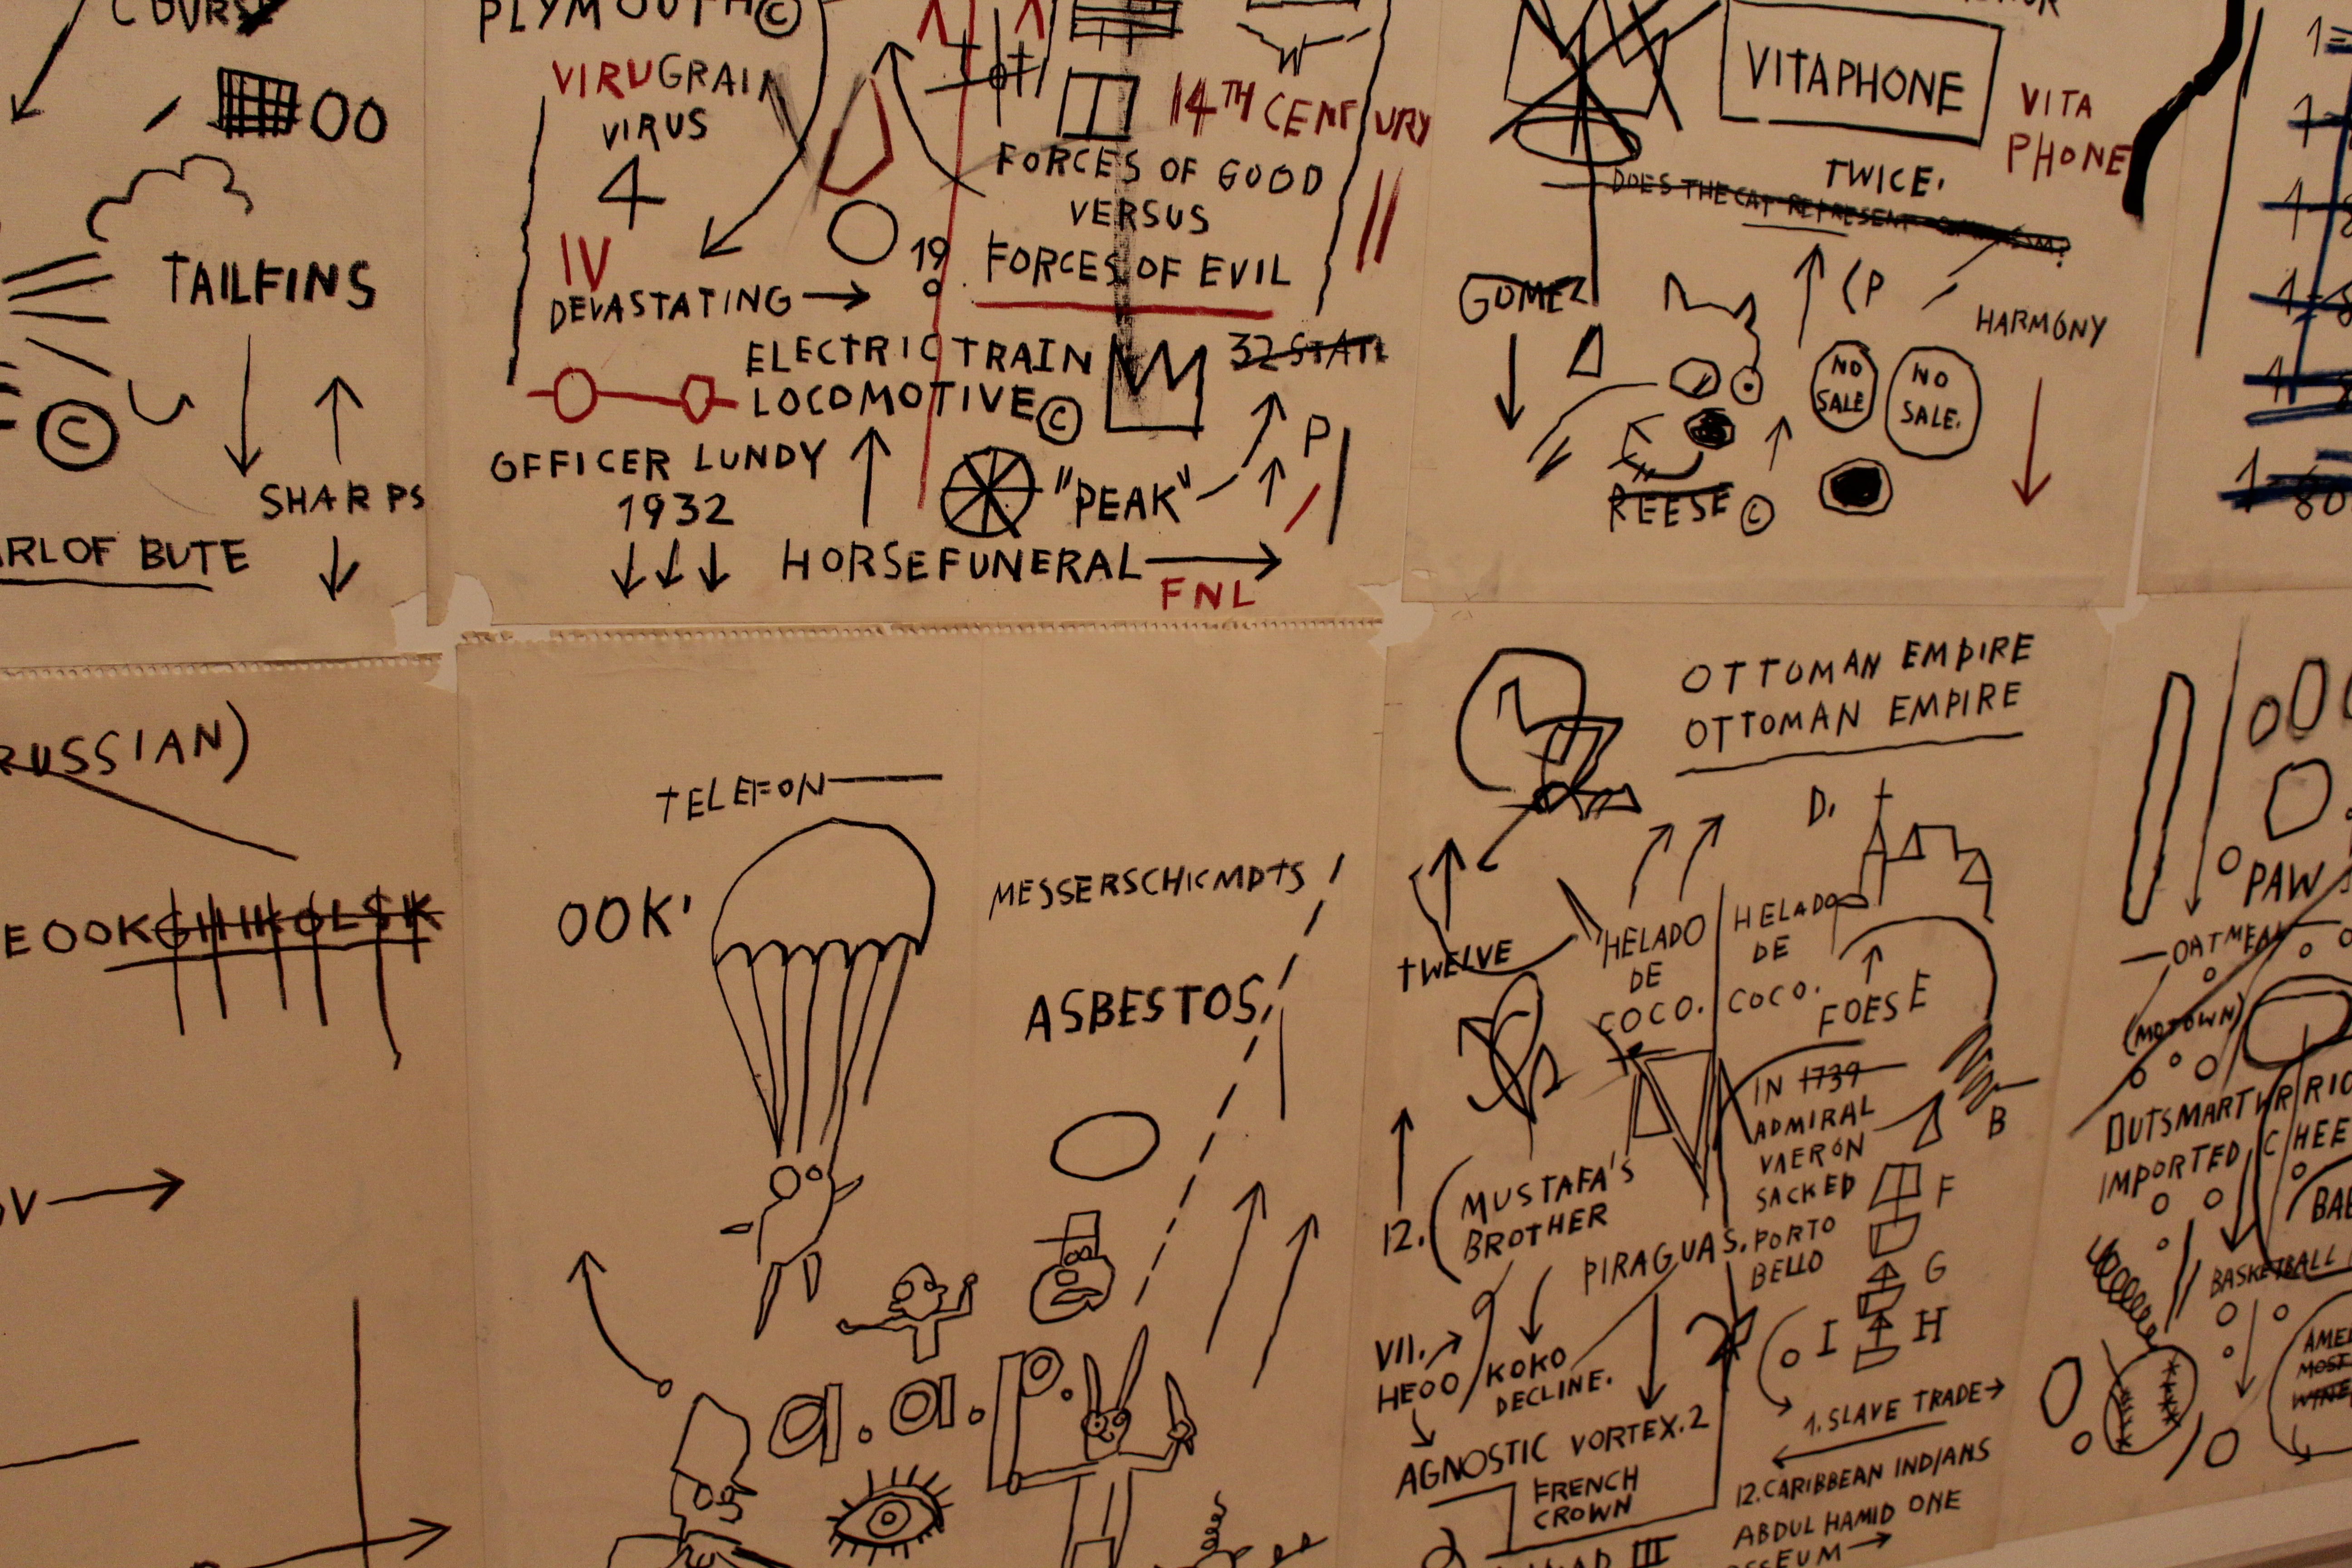 COURSE
OO
TAILFINS
©
SHARPS
ARL OF BUTE
PLYMOUTH©
VIRUGRAIN
VIRUS
4
IV
DEVASTATING
19
14TH CENTURY
FORCES OF GOOD
VERSUS
FORCES OF EVIL
II
ELECTRIC TRAIN
LOCOMOTIVE©
OFFICER LUNDY
1932
"PEAK"
P
HORSEFUNERAL
FNL
VITAPHONE
VITA
PHONE
TWICE.
DOES THE CAT REPRESENT
GOMEZ
(P
HARMONY
NO
SALE
NO
SALE.
REESE©
RUSSIAN)
EOOKCHIKOLSK
V
TELEFON
OOK'
MESSERSCHICMDTS
ASBESTOS
a.a.p.
OTTOMAN EMPIRE
OTTOMAN EMPIRE
D.
TWELVE
HELADO
DE
COCO.
HELADO
DE
COCO.
FOESE
IN 1739
ADMIRAL
VAERON
SACKED
PORTO
BELLO
B
F
G
H
I
12.
(MUSTAFA'S
BROTHER
PIRAGUAS.
VII.
HEOO
KOKO
DECLINE.
AGNOSTIC VORTEX.2
FRENCH
CROWN
III
1.SLAVE TRADE
12.CARIBBEAN INDIANS
ABDUL HAMID ONE
SEUM
PAW
OATMEAL
(MOTOWN)
OUTSMART
IMPORTED CHEE
BASKETBALL
AME
MOST
WINE